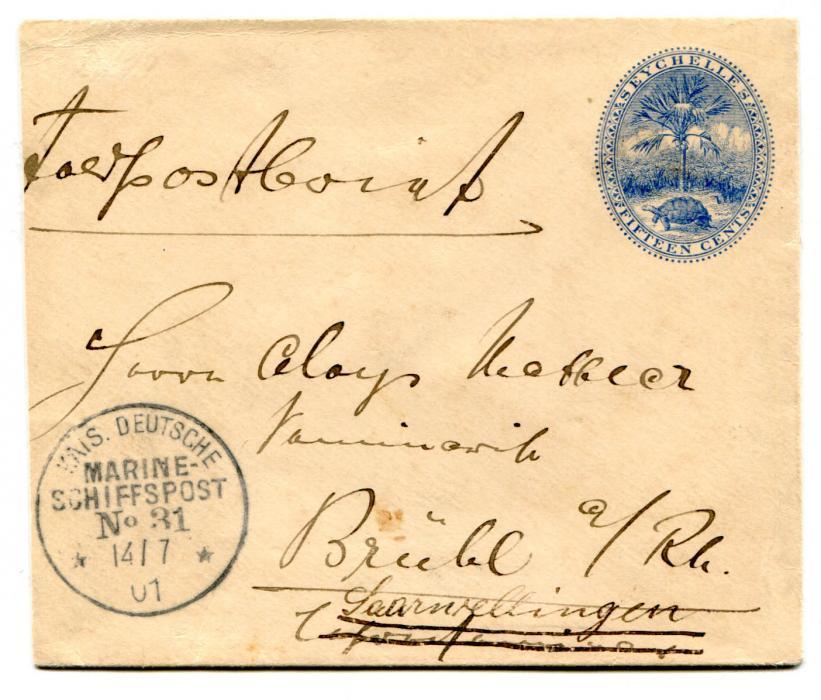 Feldpostbrief
SEYCHELLES
FIFTEEN CENTS
Herrn Aloys
Brühl a/Rh.
Saarwellingen
KAIS. DEUTSCHE
MARINE-
SCHIFFSPOST
No 31
14/7
01